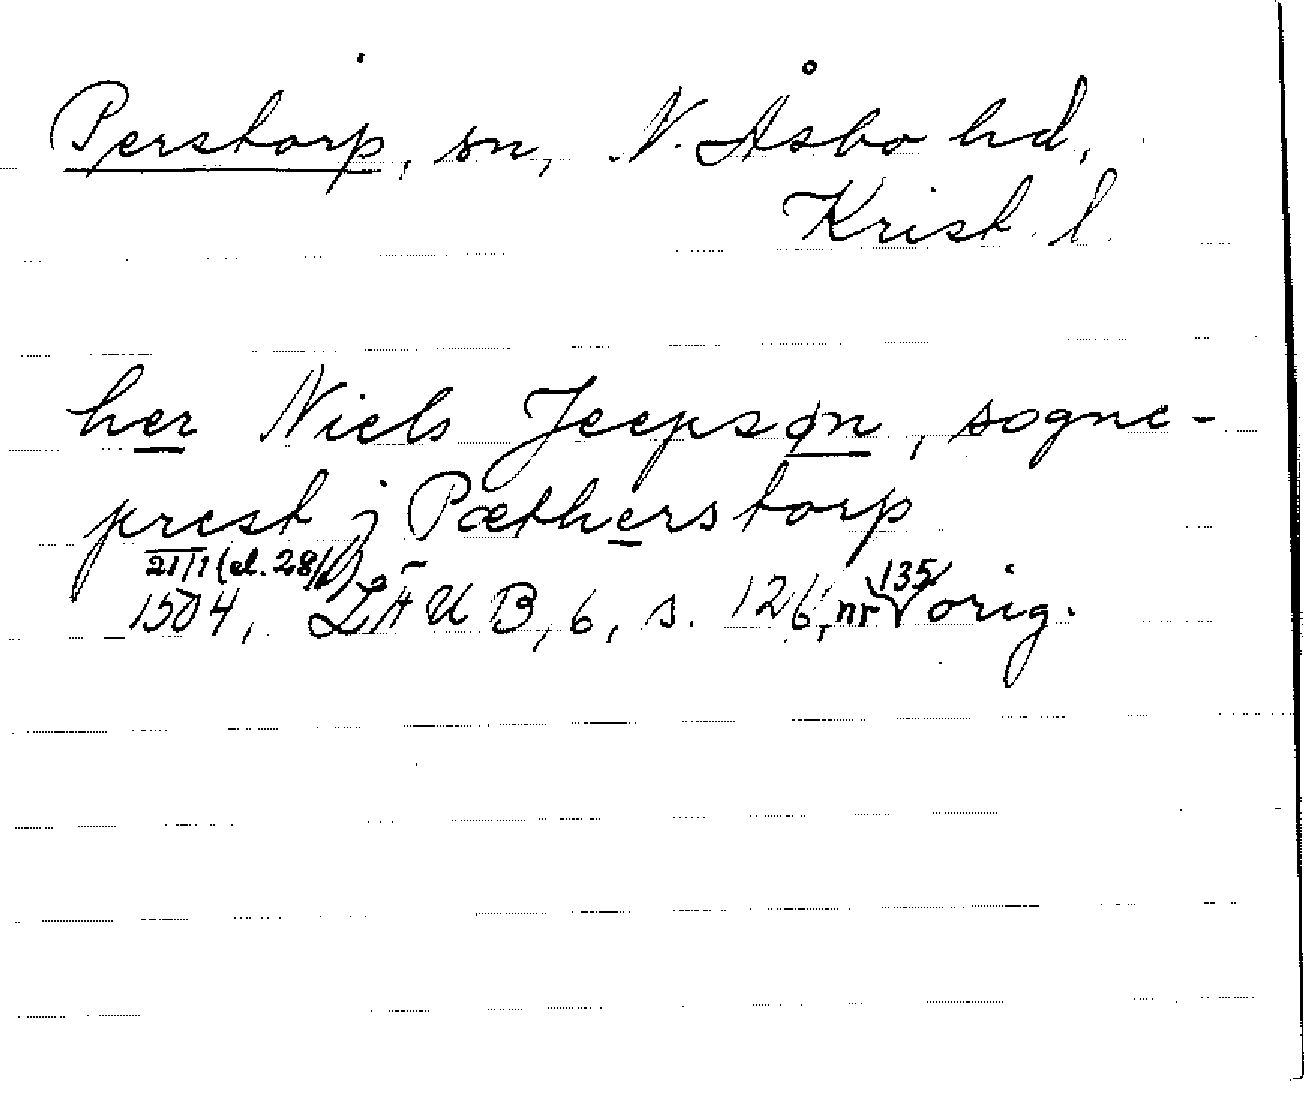 Perstorp, sn, N. Åsbo hd,
Krist. l.
her Niels Jeepsøn, sogne-
prest j Pætherstorp
21/1 (el. 28/1)
1504, LÄUB, 6, s. 126, nr 135 orig.